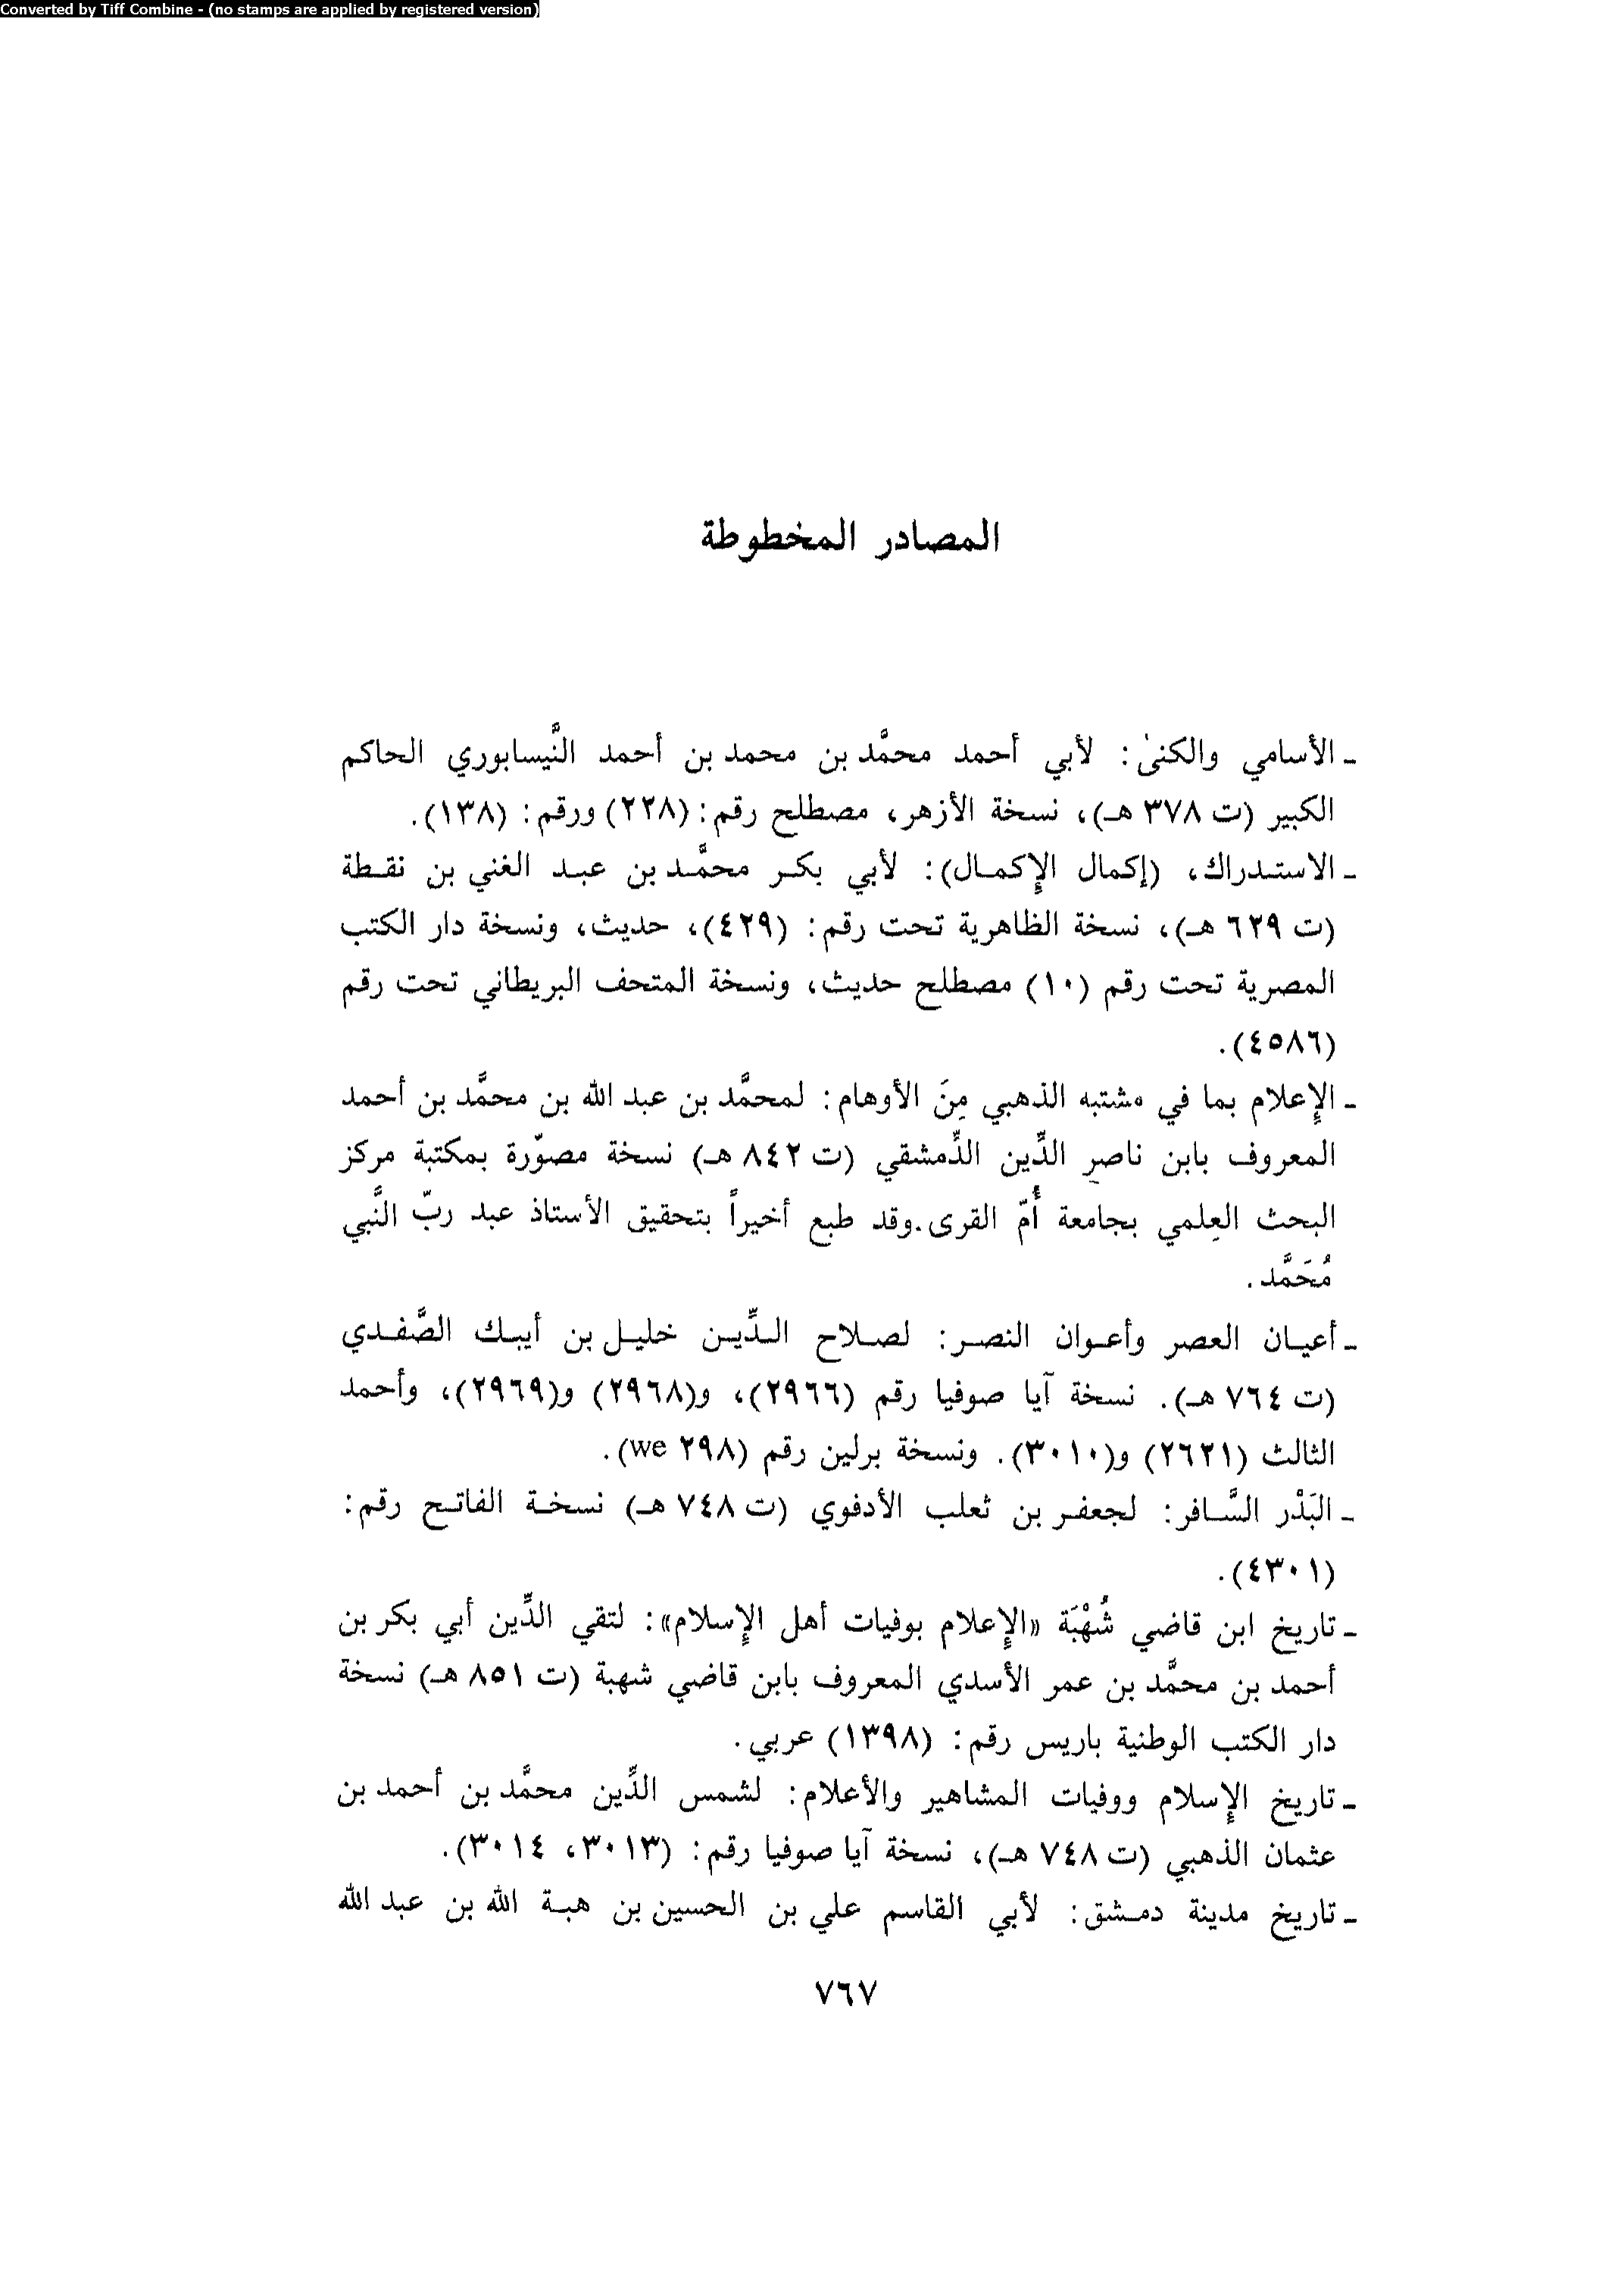 Converted by Tiff Combine - (no stamps are applied by registered version)
المصادر المخطوطة
ـ الأسامي والكنىٰ: لأبي أحمد محمَّد بن محمد بن أحمد النَّيسابوري الحاكم
الكبير (ت ٣٧٨ هـ)، نسخة الأزهر، مصطلح رقم: (٢٢٨) ورقم: (١٣٨).
ـ الاستدراك، (إكمال الإكمال): لأبي بكر محمَّد بن عبد الغني بن نقطة
(ت ٦٢٩ هـ)، نسخة الظاهرية تحت رقم: (٤٢٩)، حديث، ونسخة دار الكتب
المصرية تحت رقم (١٠) مصطلح حديث، ونسخة المتحف البريطاني تحت رقم
(٤٥٨٦).
ـ الإعلام بما في مشتبه الذهبي مِنَ الأوهام: لمحمَّد بن عبد الله بن محمَّد بن أحمد
المعروف بابن ناصر الدِّين الدِّمشقي (ت ٨٤٢ هـ) نسخة مصوّرة بمكتبة مركز
البحث العِلمي بجامعة أُمّ القرى. وقد طبع أخيراً بتحقيق الأستاذ عبد ربّ النَّبي
مُحَمَّد.
ـ أعيان العصر وأعوان النصر: لصلاح الدِّين خليل بن أيبك الصَّفدي
(ت ٧٦٤ هـ). نسخة آيا صوفيا رقم (٢٩٦٦)، و(٢٩٦٨) و(٢٩٦٩)، وأحمد
الثالث (٢٦٢١) و(٣٠١٠). ونسخة برلين رقم (٢٩٨ we).
ـ البَدْر السَّافر: لجعفر بن ثعلب الأدفوي (ت ٧٤٨ هـ) نسخة الفاتح رقم:
(٤٣٠١).
ـ تاريخ ابن قاضي شُهْبَة «الإعلام بوفيات أهل الإسلام»: لتقي الدِّين أبي بكر بن
أحمد بن محمَّد بن عمر الأسدي المعروف بابن قاضي شهبة (ت ٨٥١ هـ) نسخة
دار الكتب الوطنية باريس رقم: (١٣٩٨) عربي.
ـ تاريخ الإسلام ووفيات المشاهير والأعلام: لشمس الدِّين محمَّد بن أحمد بن
عثمان الذهبي (ت ٧٤٨ هـ)، نسخة آيا صوفيا رقم: (٣٠١٣، ٣٠١٤).
ـ تاريخ مدينة دمشق: لأبي القاسم علي بن الحسين بن هبة الله بن عبد الله
٧٦٧